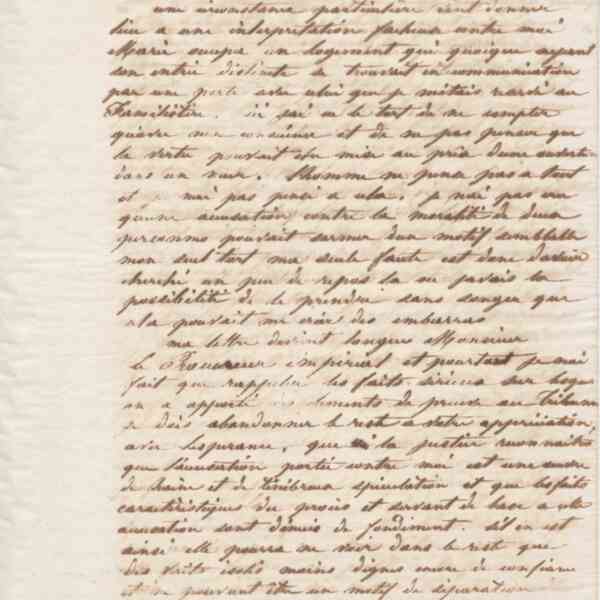 une circonstance particulière vient donner
lieu a une interprétation facheuse contre moi
Marie occupe un logement qui quoique ayant
son entrée distincte se trouvait en communication
par une porte avec celui que je m'étais réservé au
Familistère. ici j'ai eu le tort de ne compter
qu'avec ma conscience et de ne pas penser que
la vertu pouvait être mise au prix d'une ouverture
dans un mur. l'homme ne pense pas a tout
et je n'ai pas pensé a cela. je n'ai pas vu
qu'une accusation contre la moralité de deux
personnes pouvait s'armer d'un motif semblable
mon seul tort ma seule faute est donc d'avoir
cherché un peu de repos la ou j'avais la
possibilité de le prendre sans songer que
cela pouvait me créer des embarras
ma lettre devient longue Monsieur
le Procureur impérial et pourtant je n'ai
fait que rappeler les faits sérieux sur lesquels
on a apporté des éléments de preuve au tribunal
je dois abandonner le reste a votre appréciation,
avec l'espérance, que si la justice reconnaitra
que l'accusation portée contre moi est une œuvre
de haine et de ténébreuse spéculation et que les faits
caractéristiques du procès et servant de base a cette
accusation sont dénués de fondement. s'il en est
ainsi elle pourra ne voir dans le reste que
des récits isolés moins dignes encore de confiance
et ne pouvant être un motif de séparation